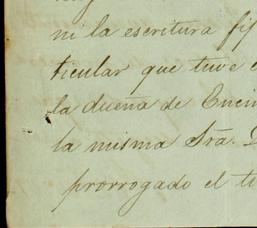 ni la escritura fi
ticular que tuve
la dueña de Enci
la misma Sra.
prorrogado el t